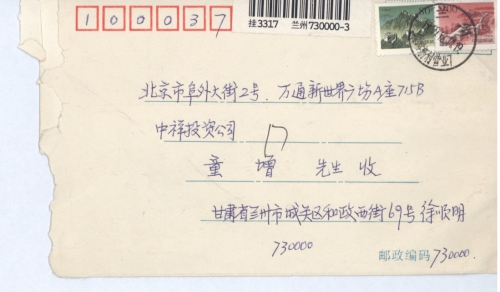 100037
挂3317 兰州730000-3
北京市阜外大街2号 万通新世界广场A座715B
中祥投资公司
童增 先生 收
甘肃省兰州市城关区和政西街69号 徐顺明
730000
邮政编码 730000